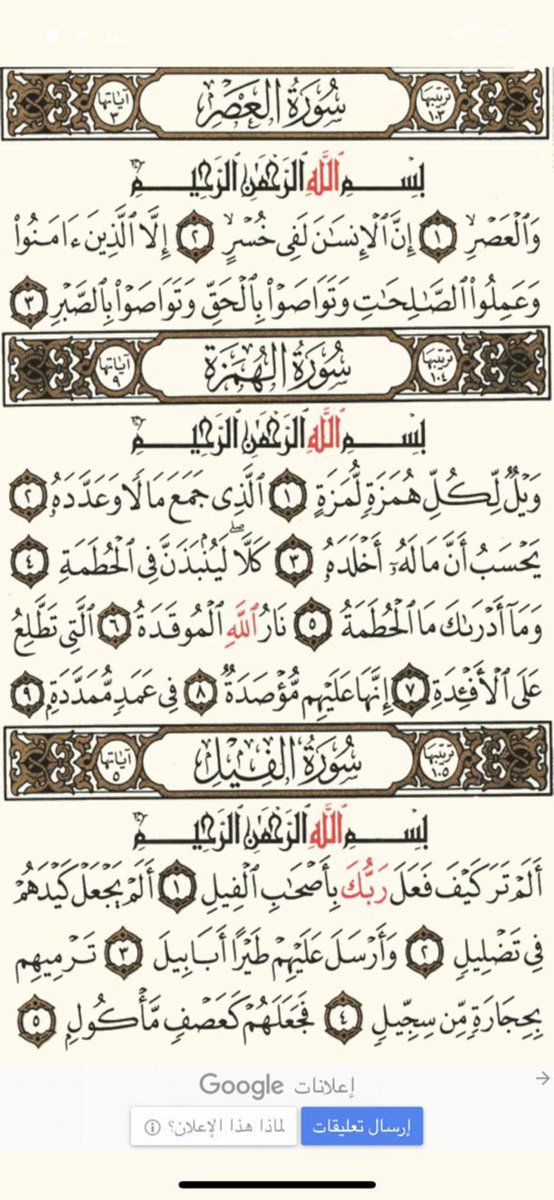 ترتيبها ١٠٣ سُورَةُ العَصْرِ آياتها ٣
بِسْمِ ٱللَّهِ ٱلرَّحْمَٰنِ ٱلرَّحِيمِ
وَٱلْعَصْرِ ١ إِنَّ ٱلْإِنسَٰنَ لَفِى خُسْرٍ ٢ إِلَّا ٱلَّذِينَ ءَامَنُوا۟
وَعَمِلُوا۟ ٱلصَّٰلِحَٰتِ وَتَوَاصَوْا۟ بِٱلْحَقِّ وَتَوَاصَوْا۟ بِٱلصَّبْرِ ٣
ترتيبها ١٠٤ سُورَةُ الهُمَزَةِ آياتها ٩
بِسْمِ ٱللَّهِ ٱلرَّحْمَٰنِ ٱلرَّحِيمِ
وَيْلٌ لِّكُلِّ هُمَزَةٍ لُّمَزَةٍ ١ ٱلَّذِى جَمَعَ مَالًا وَعَدَّدَهُۥ ٢
يَحْسَبُ أَنَّ مَالَهُۥٓ أَخْلَدَهُۥ ٣ كَلَّا ۖ لَيُنۢبَذَنَّ فِى ٱلْحُطَمَةِ ٤
وَمَآ أَدْرَىٰكَ مَا ٱلْحُطَمَةُ ٥ نَارُ ٱللَّهِ ٱلْمُوقَدَةُ ٦ ٱلَّتِى تَطَّلِعُ
عَلَى ٱلْأَفْـِٔدَةِ ٧ إِنَّهَا عَلَيْهِم مُّؤْصَدَةٌ ٨ فِى عَمَدٍ مُّمَدَّدَةٍۭ ٩
ترتيبها ١٠٥ سُورَةُ الفِيلِ آياتها ٥
بِسْمِ ٱللَّهِ ٱلرَّحْمَٰنِ ٱلرَّحِيمِ
أَلَمْ تَرَ كَيْفَ فَعَلَ رَبُّكَ بِأَصْحَٰبِ ٱلْفِيلِ ١ أَلَمْ يَجْعَلْ كَيْدَهُمْ
فِى تَضْلِيلٍ ٢ وَأَرْسَلَ عَلَيْهِمْ طَيْرًا أَبَابِيلَ ٣ تَرْمِيهِم
بِحِجَارَةٍ مِّن سِجِّيلٍ ٤ فَجَعَلَهُمْ كَعَصْفٍ مَّأْكُولٍۭ ٥
إعلانات Google
إرسال تعليقات
لماذا هذا الإعلان؟